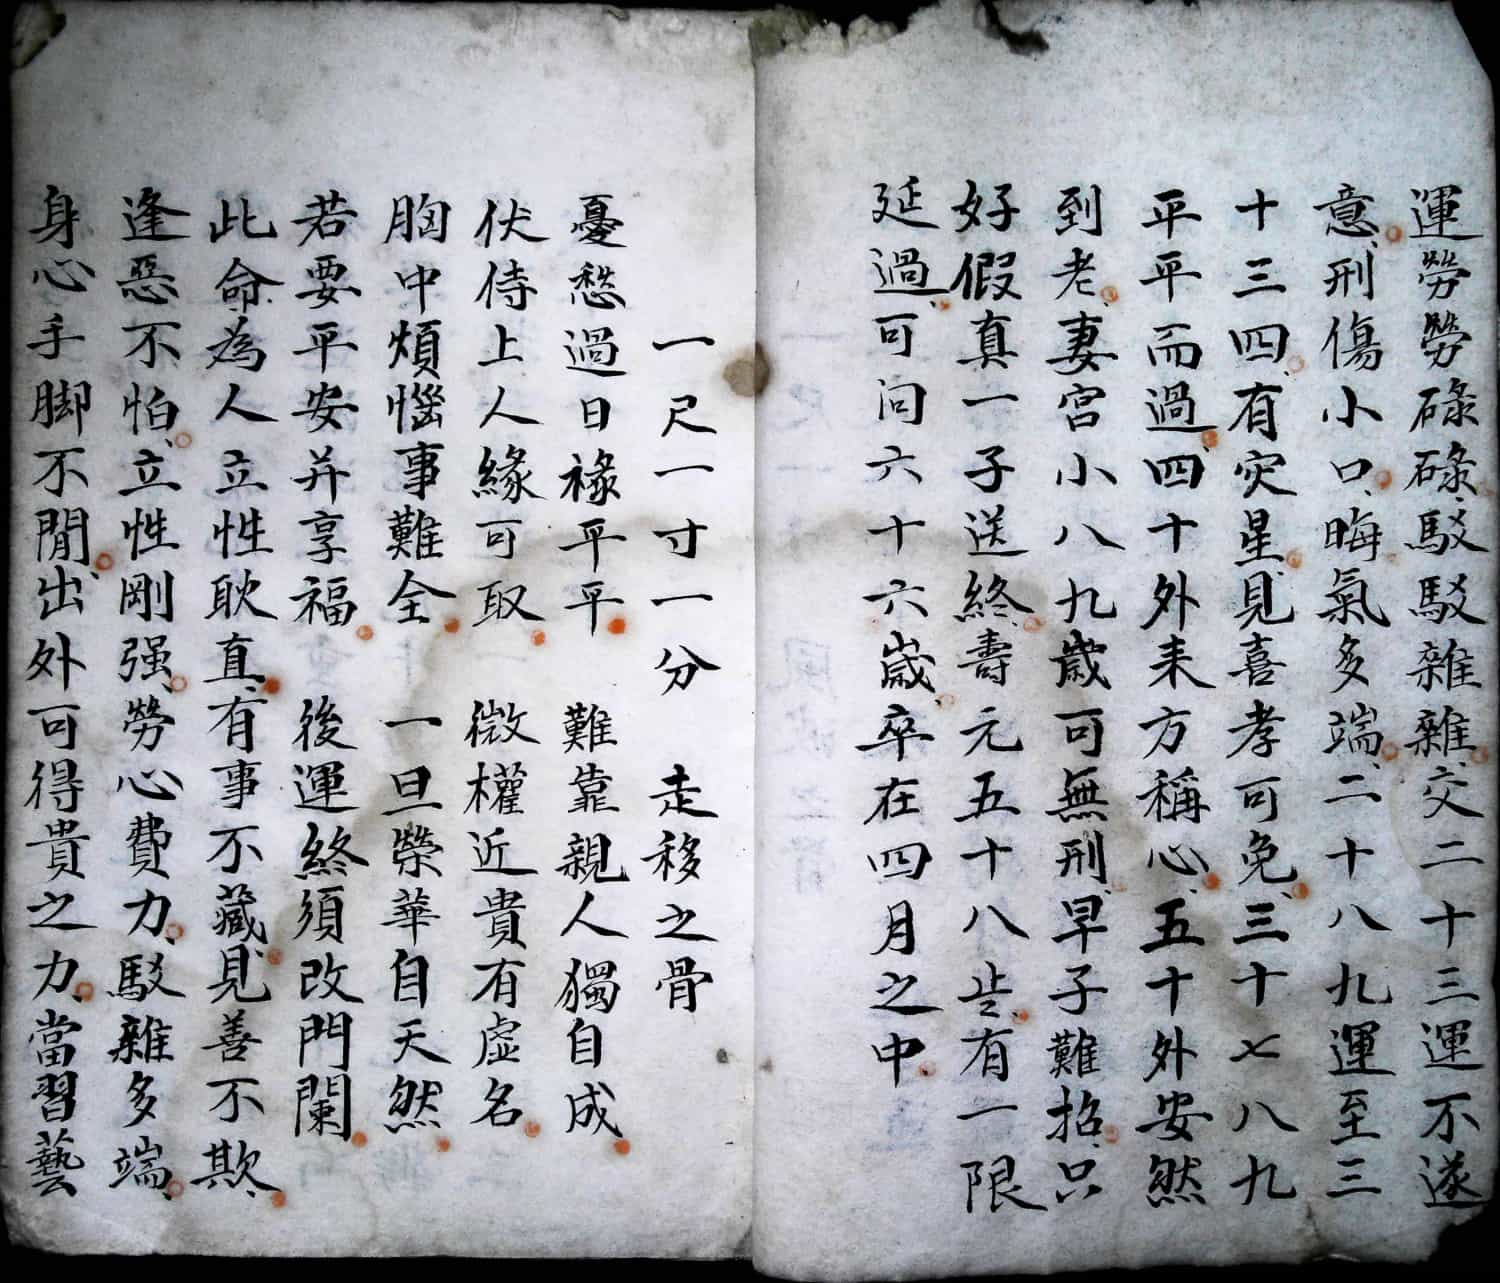 運勞勞碌碌駁駁雜雜交二十三運不遂
意刑傷小口晦氣多端二十八九運至三
十三四有灾星見喜孝可免三十七八九
平平而過四十外来方稱心五十外安然
到老妻宮小八九歲可無刑早子難招只
好假真一子送終壽元五十八些有一限
延過可问六十六歲卒在四月之中
一尺一寸一分 走移之骨
憂愁過日祿平平 難靠親人獨自成
伏侍上人緣可取 微權近貴有虛名
胸中煩惱事難全 一旦榮華自天然
若要平安并享福 後運終須改門闌
此命為人立性耿直有事不藏見善不欺
逢惡不怕立性剛强勞心費力駁雜多端
身心手脚不閒出外可得貴之力當習藝